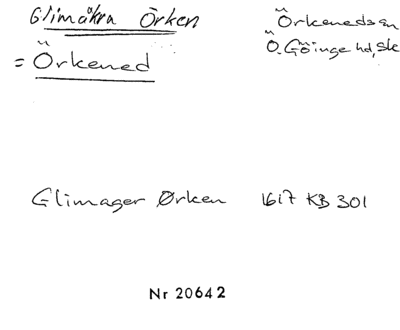 Glimåkra Örken
= Örkened
Örkeneds sn
Ö. Göinge hd, Sk
Glimager Ørken 1617 KB 301
Nr 20642